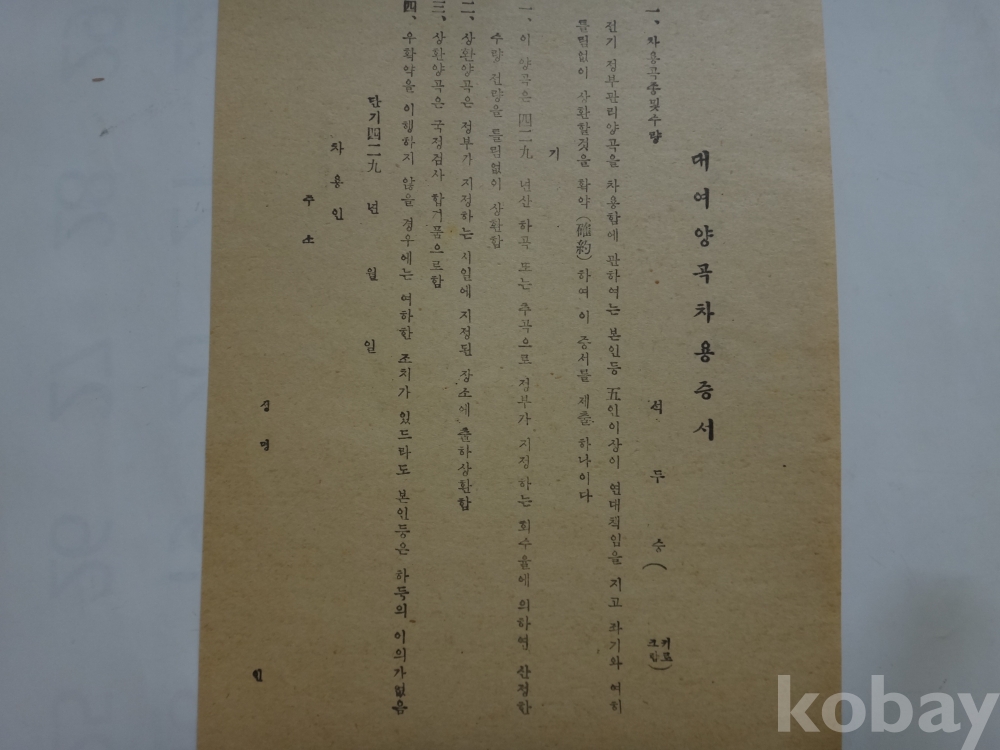 대여양곡차용증서
一、 차용곡종및수량 석 두 승 ( 키로 그람 )
전기 정부관리양곡을 차용함에 관하여는 본인등 五인이상이 연대책임을 지고 좌기와 여히
틀림없이 상환할것을 확약(確約)하여 이 증서를 제출 하나이다
기
一、 이 양곡은 四二九 년산 하곡 또는 추곡으로 정부가 지정하는 회수율에 의하여 산정한
수량 전량을 틀림없이 상환함
二、 상환양곡은 정부가 지정하는 시일에 지정된 장소에 출하상환함
三、 상환양곡은 국정검사 합격품으로함
四、 우확약을 이행하지 않을 경우에는 여하한 조치가 있드라도 본인등은 하등의 이의가없음
단기四二九 년 월 일
차용인
주소
성명 인
kobay